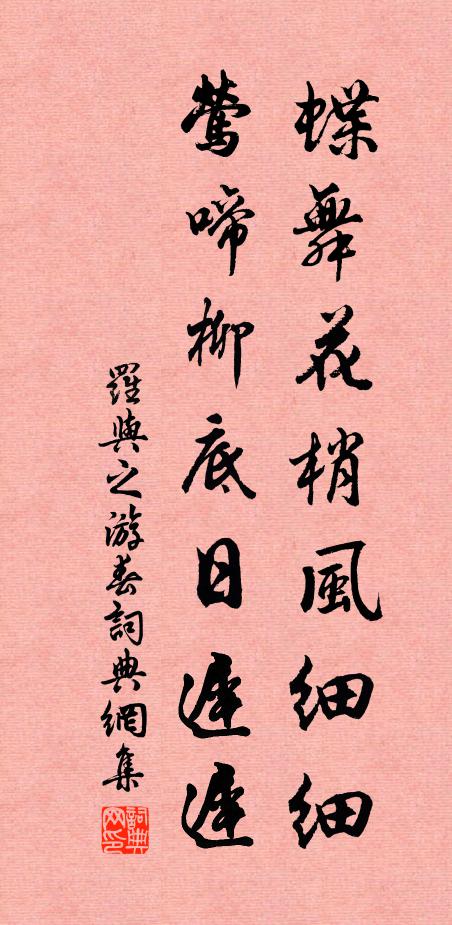 蝶舞花梢風細細
鶯啼柳底日遲遲
羅與之游春詞典網集
詞典網印